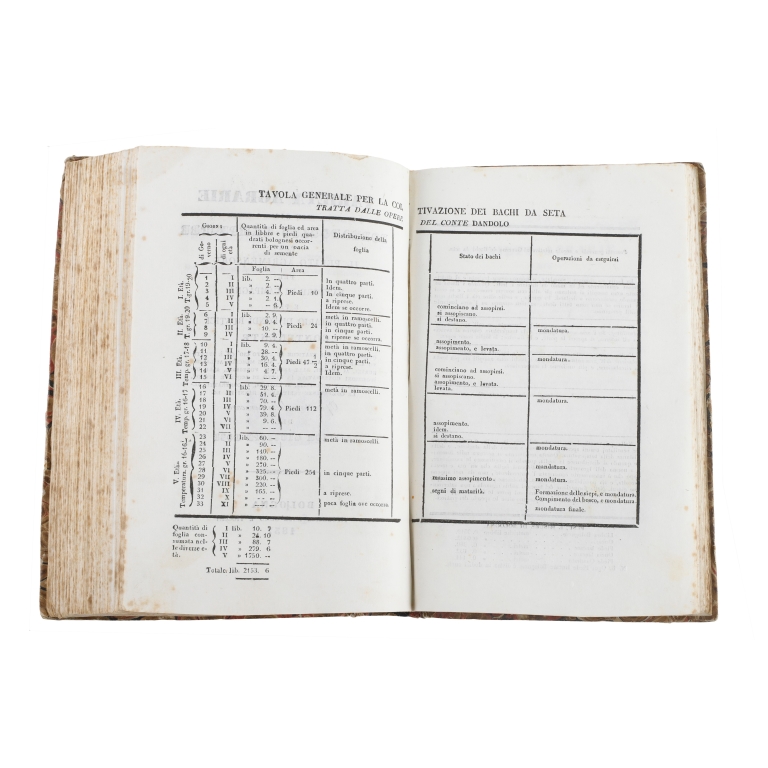 TAVOLA GENERALE PER LA COL
TRATTA DALLE OPERE
Giorni
di Governo
di ogni età
Quantità di foglia ed area
in libbre e piedi quadrati
bolognesi occorrenti
per un oncia
di semente
Distribuzione della
foglia
Foglia Area
I. Età. T. gr. 19-20
1 I lib. 2. --
2 II » 2. --
3 III » 4. --
4 IV » 2. 1.
5 V » --. 6.
Piedi 10
In quattro parti.
Idem.
In cinque parti.
a riprese.
Idem se occorre.
II. Età. T. gr. 19-20
6 I lib. 2. 9.
7 II » 9. 4.
8 III » 10. --
9 IV » 2. 9.
Piedi 24
metà in ramoscelli.
in quattro parti.
in cinque parti.
a riprese se occorre.
III. Età. Temp. gr. 17-18
10 I lib. 9. 4.
11 II » 28. --
12 III » 30. 4.
13 IV » 16. 4.
14 V » 4. 7.
15 VI » -- --
Piedi 47 1/2
metà in ramoscelli.
in quattro parti.
in cinque parti.
a riprese.
Idem.
IV. Età. Temp. gr. 16-17
16 I lib. 39. 8.
17 II » 51. 4.
18 III » 70. --
19 IV » 79. 4.
20 V » 39. 8.
21 VI » 9. 6.
22 VII » -- --
Piedi 112
metà in ramoscelli.
V. Età. Temperatura gr. 16-16
23 I lib. 60. --
24 II » 90. --
25 III » 140. --
26 IV » 180. --
27 V » 270. --
28 VI » 325. --
29 VII » 300. --
30 VIII » 220. --
31 IX » 165. --
32 X »
33 XI »
Piedi 254
metà in ramoscelli.
in cinque parti.
a riprese.
poca foglia ove occorre.
Quantità di
foglia con-
sumata nel-
le diverse e-
tà.
I lib. 10. 7
II » 24. 10
III » 88. 7
IV » 279. 6
V » 1750. --
Totale: lib. 2153. 6
TIVAZIONE DEI BACHI DA SETA
DEL CONTE DANDOLO
Stato dei bachi
Operazioni da eseguirsi
cominciano ad assopirsi.
si assopiscano.
si destano.
mondatura.
assopimento.
assopimento, e levata.
mondatura.
cominciano ad assopirsi.
si assopiscano.
assopimento, e levata.
levata.
mondatura.
assopimento.
idem.
si destano.
mondatura.
mondatura.
massimo assopimento.
mondatura.
segni di maturità.
Formazione delle siepi, e mondatura.
Compimento del bosco, e mondatura.
mondatura finale.